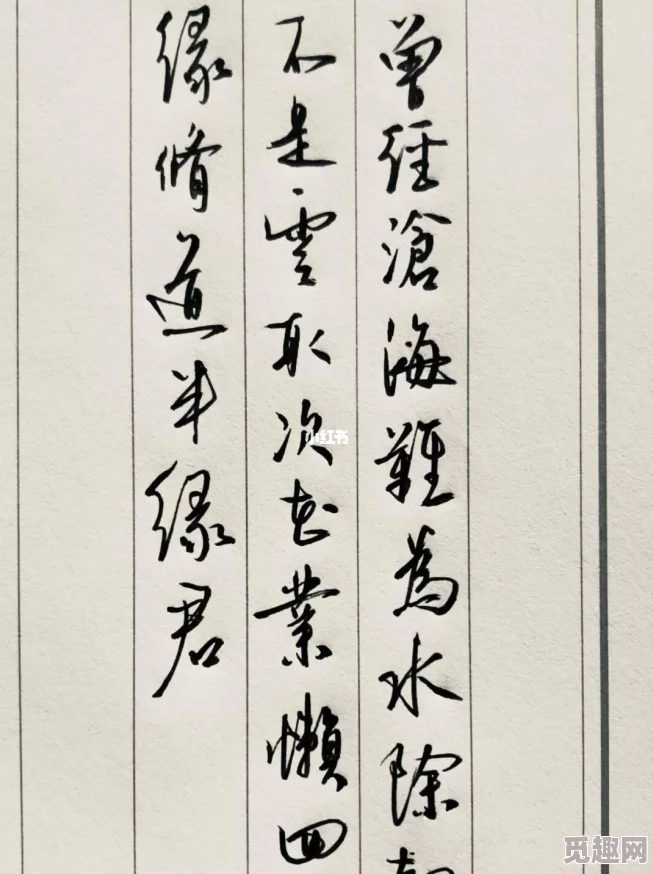 曾經滄海難為水除
不是雲取次花叢懶回
緣脩道半緣君
小红书
觅趣网